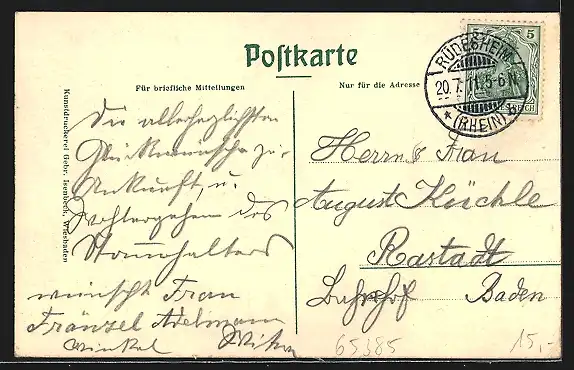 Postkarte
Für briefliche Mitteilungen
Nur für die Adresse
Kunstdruckerei Gebr. Isenbeck, Wiesbaden
5 5
RÜDESHEIM
20.7.11.5-6N.
* (RHEIN) b
REICH
Die allerherzlichsten
Glückwünsche zur
Ankunft, u.
Wohlergehen des
Stammhalters
wünscht Frau
Fränzel Adelmann
Winkel
Herrn u. Frau
August Küchle
Rastadt
Bahnhof Baden
65385
15,-